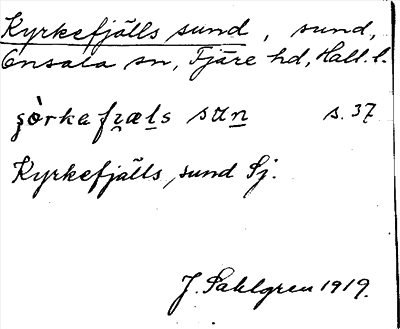 Kyrkefjälls sund, sund,
Onsala sn, Fjäre hd, Hall. l.
s. 37
Kyrkefjälls sund Sj.
J. Sahlgren 1919.